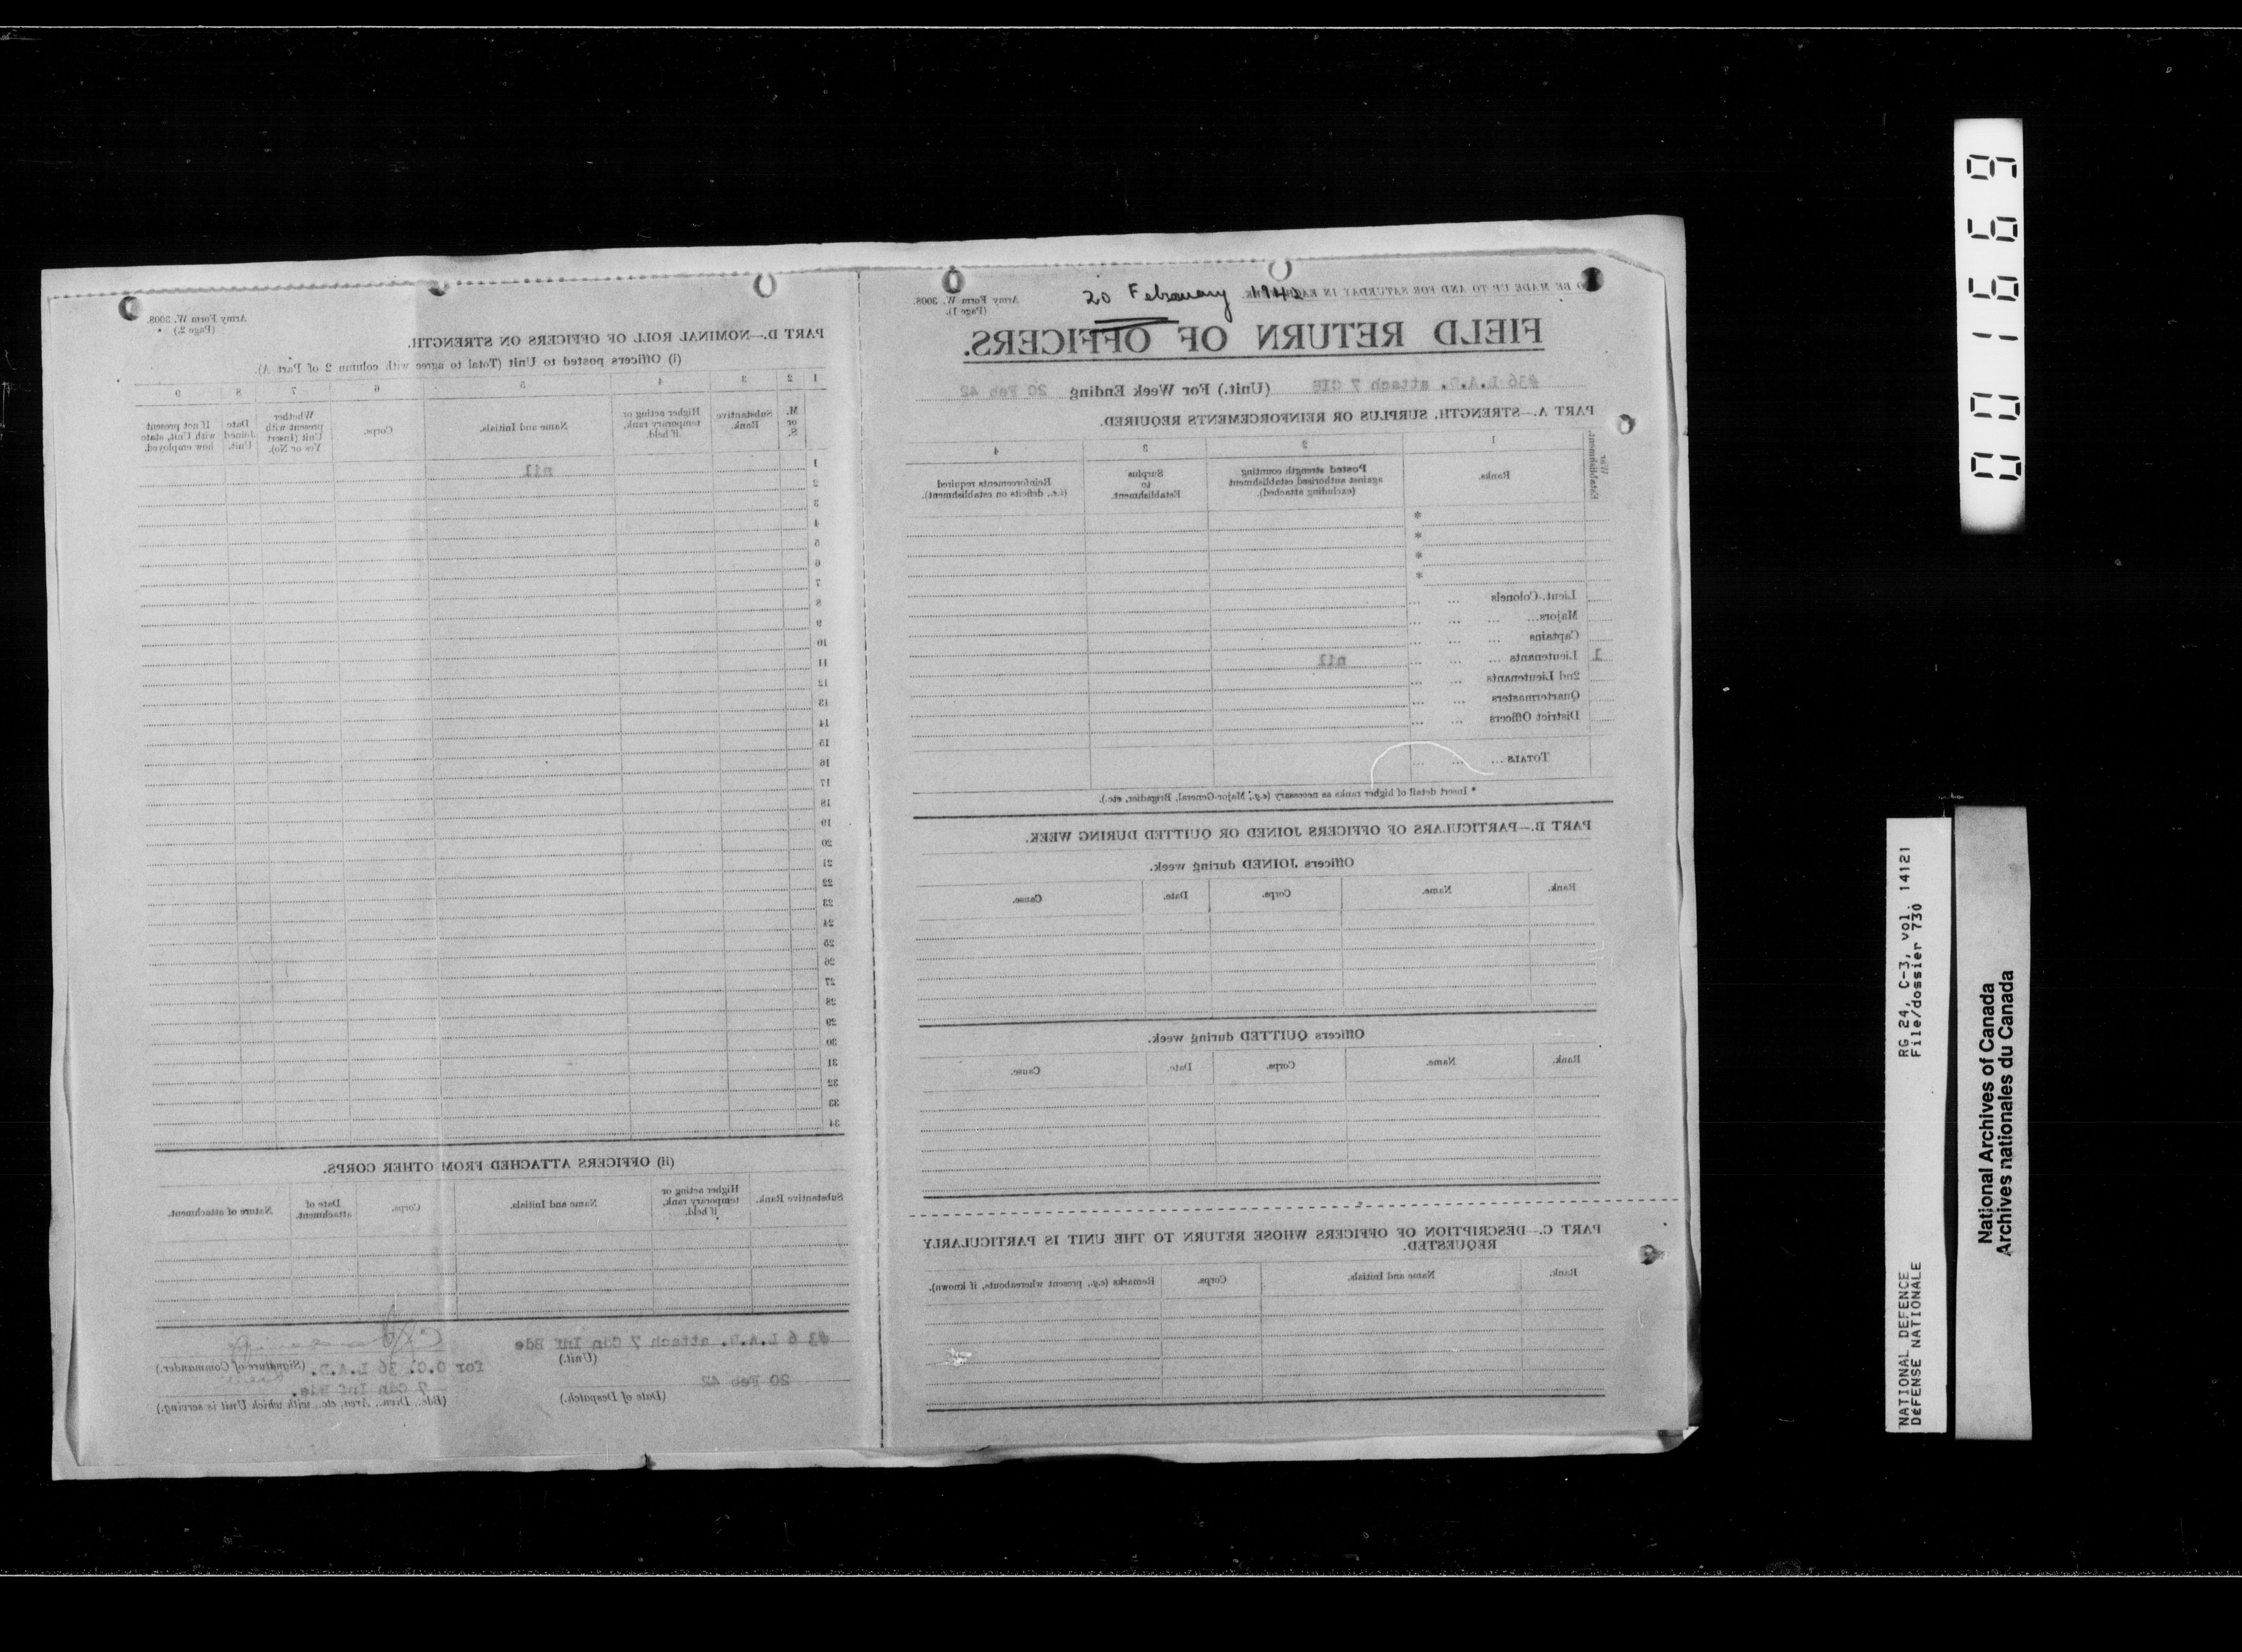 TO BE MADE UP TO AND FOR SATURDAY IN EACH WEEK.
20 February 1942
Army Form W. 3008.
(Page 1).
FIELD RETURN OF OFFICERS.
#36 L.A.D. attach 7 CIB (Unit.) For Week Ending 20 Feb 42
PART A.—STRENGTH, SURPLUS OR REINFORCEMENTS REQUIRED.
War Establishment.
1 2 3 4
Ranks.
Posted strength counting against authorised establishment (excluding attached).
Surplus to Establishment.
Reinforcements required (i.e., deficits on establishment).
*
*
*
*
Lieut.-Colonels ... ...
Majors... ... ... ...
Captains ... ... ...
1 Lieutenants ... ... ... nil
2nd Lieutenants ... ...
Quartermasters ... ...
District Officers ... ...
TOTALS ... ... ...
* Insert detail of higher ranks as necessary (e.g., Major-General, Brigadier, etc.).
PART B.—PARTICULARS OF OFFICERS JOINED OR QUITTED DURING WEEK.
Officers JOINED during week.
Rank. Name. Corps. Date. Cause.
Officers QUITTED during week.
Rank. Name. Corps. Date. Cause.
PART C.—DESCRIPTION OF OFFICERS WHOSE RETURN TO THE UNIT IS PARTICULARLY
REQUESTED.
Rank. Name and Initials. Corps. Remarks (e.g., present whereabouts, if known).
Army Form W. 3008.
(Page 2).
PART D.—NOMINAL ROLL OF OFFICERS ON STRENGTH.
(i) Officers posted to Unit (Total to agree with column 2 of Part A).
1 2 3 4 5 6 7 8 9
M. or S.
Substantive Rank.
Higher acting or temporary rank, if held.
Name and Initials.
Corps.
Whether present with Unit (Insert Yes or No).
Date Joined Unit.
If not present with Unit, state how employed.
1 nil
2
3
4
5
6
7
8
9
10
11
12
13
14
15
16
17
18
19
20
21
22
23
24
25
26
27
28
29
30
31
32
33
34
(ii) OFFICERS ATTACHED FROM OTHER CORPS.
Substantive Rank.
Higher acting or temporary rank, if held.
Name and Initials.
Corps.
Date of attachment.
Nature of attachment.
#3 6 L.A.D. attach 7 Cdn Inf Bde
(Unit.)
20 Feb 42
(Date of Despatch.)
for O.C. 36 L.A.D. (Signature of Commander.)
7 Cdn Inf Bde.
(Bde., Divn., Area, etc., with which Unit is serving.)
001669
NATIONAL DEFENCE RG 24, C-3, vol. 14121
DéFENSE NATIONALE File/dossier 730
National Archives of Canada
Archives nationales du Canada